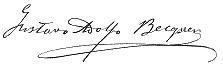 Gustavo Adolfo Becquer